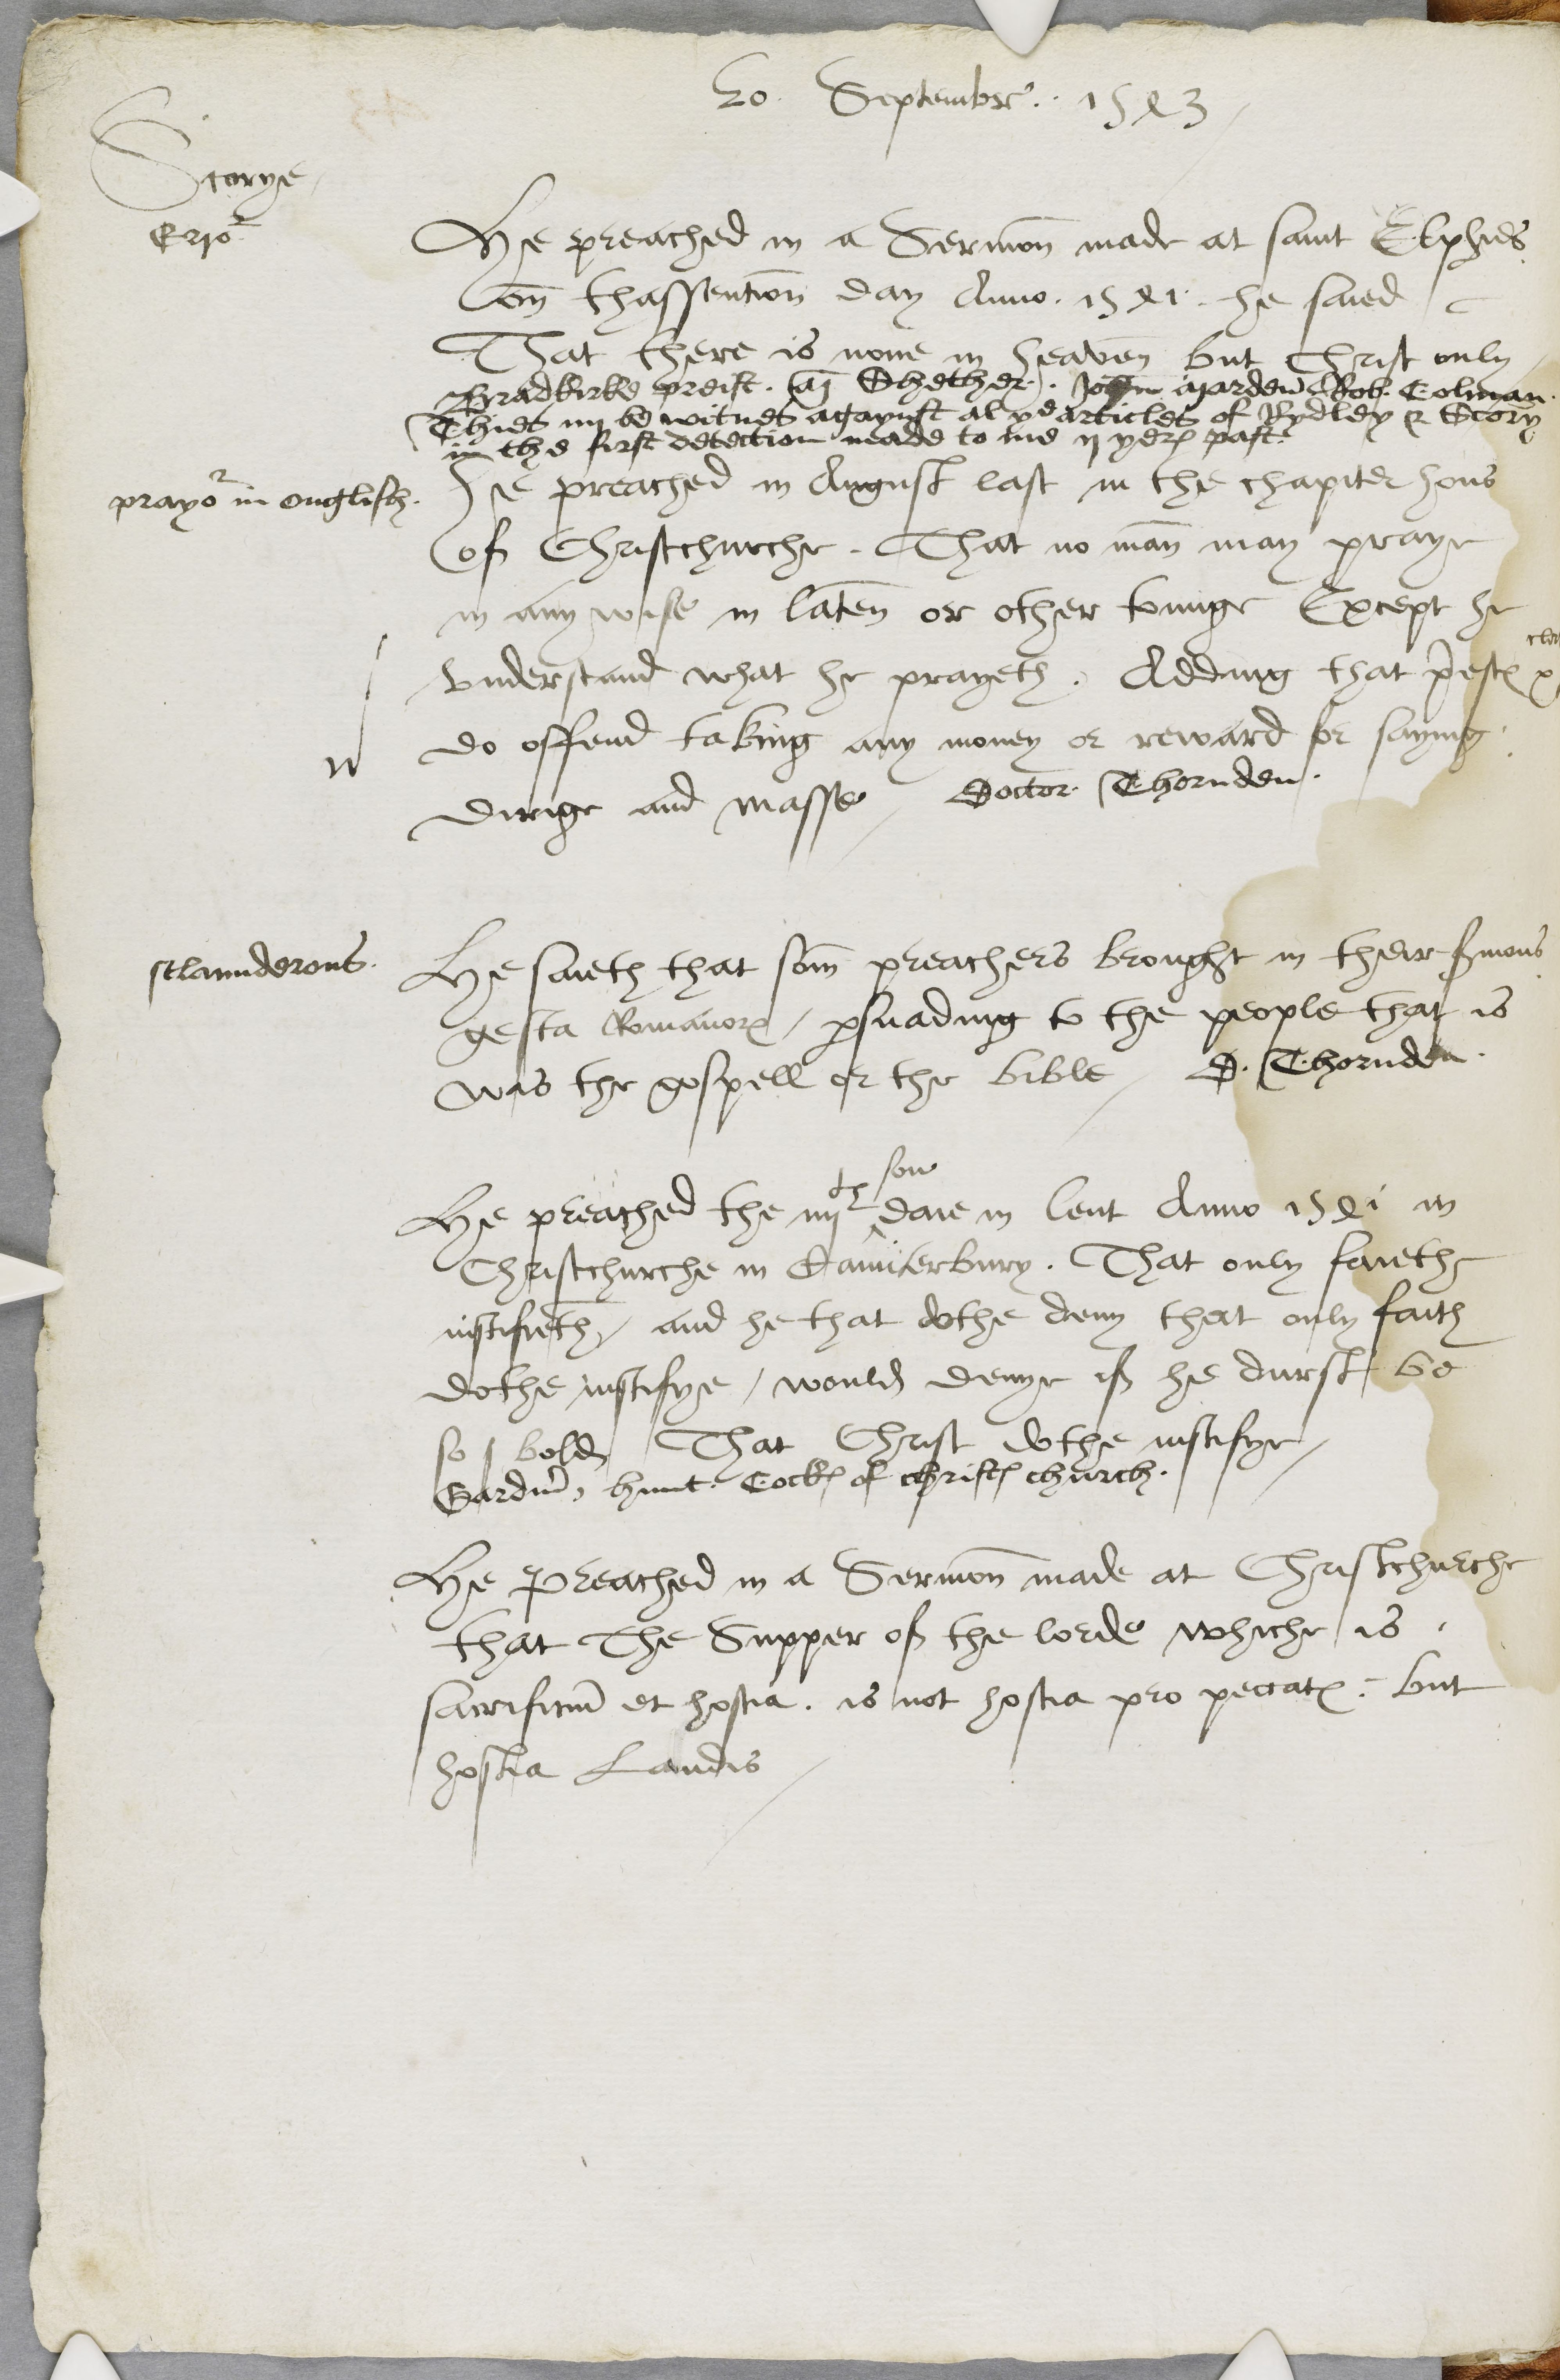 20. Septembre. 1543
Scorye
Erro^r
He preached in a Sermon made at saint Elphies
on thassention day Anno. 1541. he saied
That there is none in heaven but Christ only
Bradkirke preist. Shether. John a garden Rob. Colman.
Thies iiij be witnes agaynst al y^e articles of Rydley & Scory
in the first detection made to me ij yers past.
prayo^r in englisch.
He preached in August last in the chapiter hous
of Christchurche. That no man may praye
in any wise in laten or other tounge Except he
vnderstand what he prayeth. Adding that prests
do offend taking any money or reward for saying
dirige and masse Doctor Thornden.
sclaunderous.
He saieth that som preachers brought in their sermons
gesta Romanorum, persuading to the people that is
was the gospell or the bible D. Thornden.
son
He preached the iiij^th daie in lent Anno 1541 in
Christchurche in Caunterbury. That only faieth
iustifieth, and he that dothe deny that only faith
dothe iustifye, would denye if he durst be
so bold That Christ dothe iustifye
Gardiner, hunt. Cocks of christs church.
He Preached in a Sermon made at Christchurche
that The Supper of the lorde whiche is
sacrificium et hostia. is not hostia pro peccatis: but
hostia Laudis